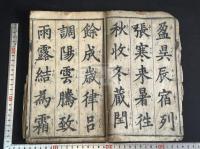 盈昃辰宿列
張寒来暑往
秋收冬蔵閏
餘成歳律呂
調陽雲騰致
雨露結為霜